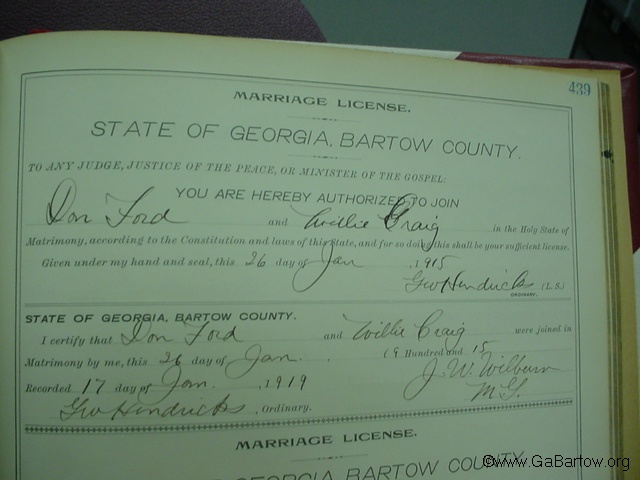 439
MARRIAGE LICENSE.
STATE OF GEORGIA, BARTOW COUNTY.
TO ANY JUDGE, JUSTICE OF THE PEACE, OR MINISTER OF THE GOSPEL:
YOU ARE HEREBY AUTHORIZED TO JOIN
Don Ford and Willie Craig in the Holy State of
Matrimony, according to the Constitution and laws of this State, and for so doing this shall be your sufficient license.
Given under my hand and seal, this 26 day of Jan , 1915
Geo Hendricks (L. S.)
ORDINARY.
STATE OF GEORGIA, BARTOW COUNTY.
I certify that Don Ford and Willie Craig were joined in
Matrimony by me, this 26 day of Jan. 19 Hundred and 15
Recorded 17 day of Jan. , 1919 J. W. Wilburn
Geo Hendricks , Ordinary. M G.
MARRIAGE LICENSE.
STATE OF GEORGIA, BARTOW COUNTY.
©www.GaBartow.org